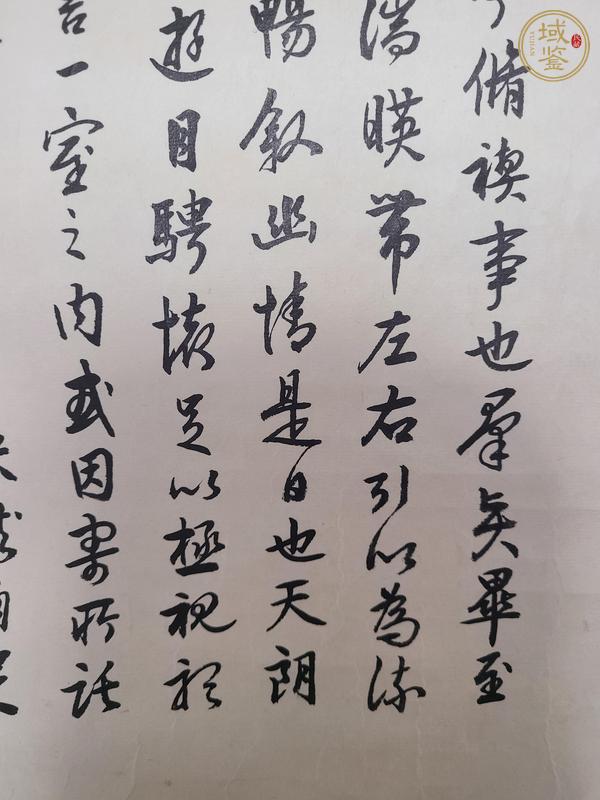 脩禊事也羣賢畢至
湍暎帶左右引以為流
暢叙幽情是日也天朗
遊目騁懷足以極視聽
言一室之内或因寄所託
域鉴
YUJIAN